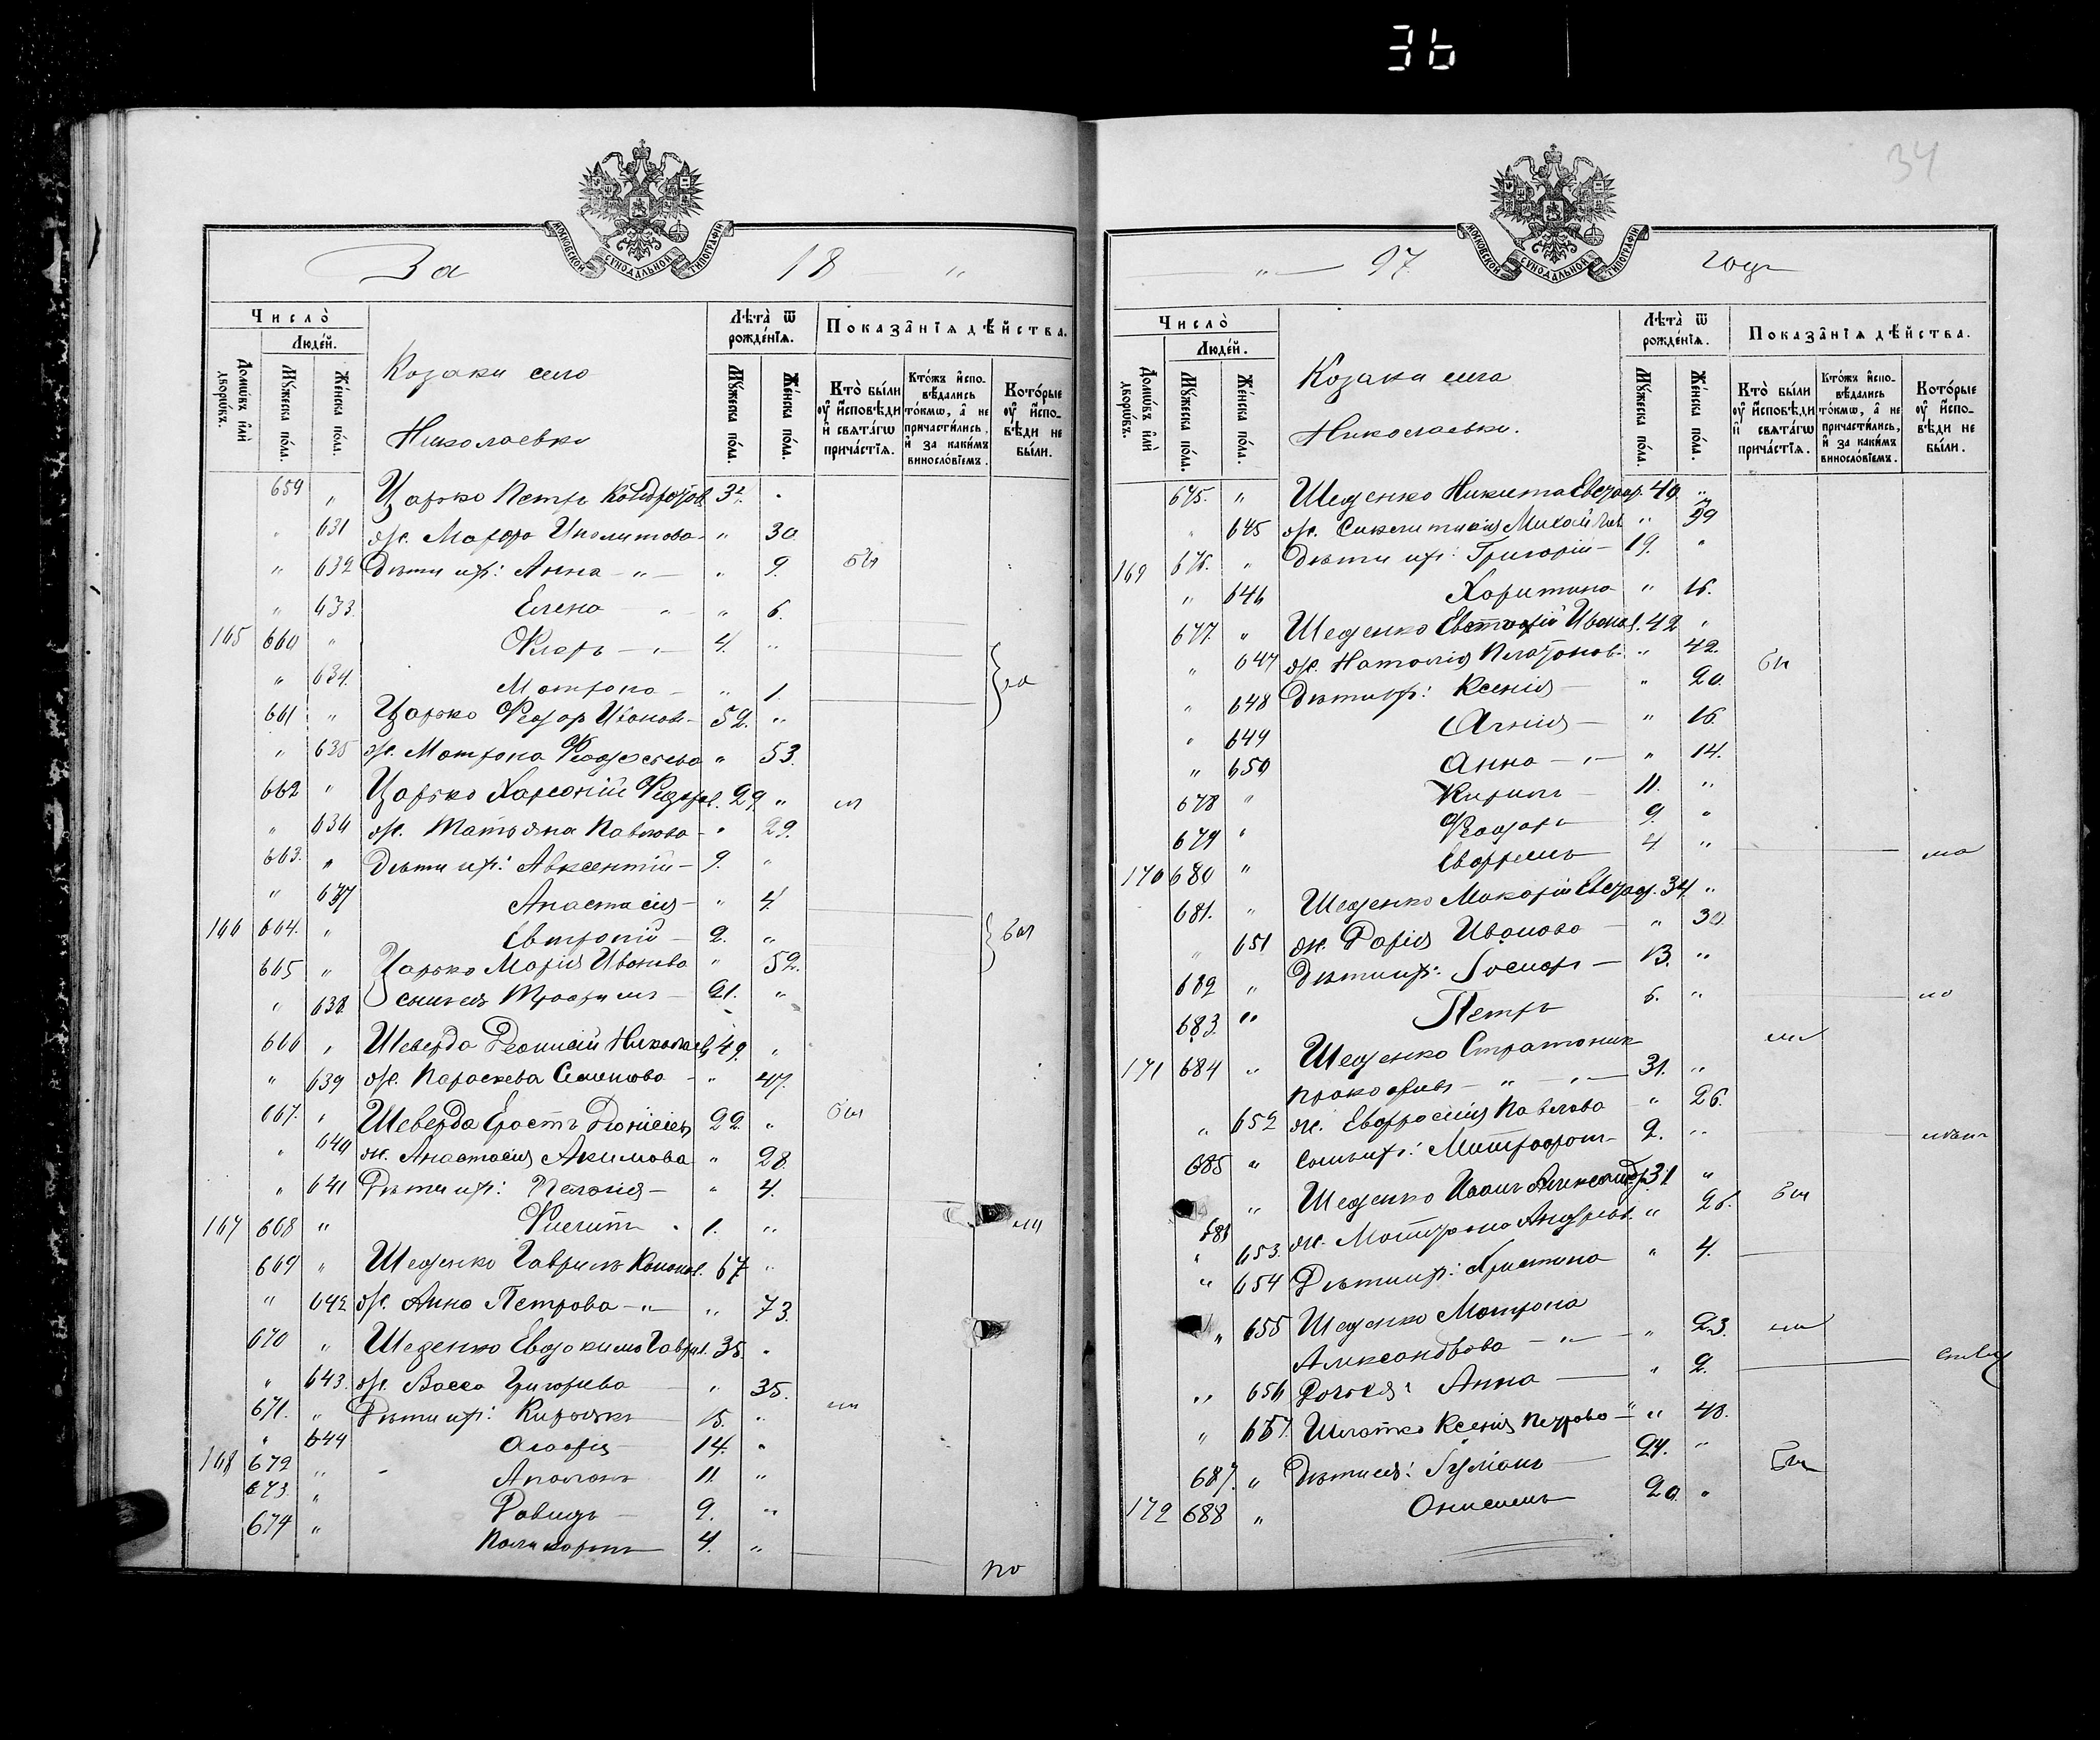 36
МОСКОВСКОЙ СѴНОДАЛЬНОЙ ТИПОГРАФІИ
За 18 "
Число̀
Домѡ́въ и҆лѝ дворѡ́въ.
Люде́й.
Мꙋ́жеска по́ла.
Же́нска по́ла.
Козаки село
Николаевки
Лѣта̀ ѿ рожде́нїѧ.
Мꙋ́жеска по́ла.
Же́нска по́ла.
Показа̑нїѧ дѣ́йства.
Кто̀ бы́ли ᲂу҆ и҆́сповѣди и҆ свѧта́гѡ прича́стїѧ.
Кто́жъ и҆спо-вѣ́дались то́кмѡ, а҆ не причасти́лись, и҆ за каки́мъ винослові́емъ.
Кото́рые ᲂу҆ и҆́спо-вѣди не бы́ли.
659 " Царько Петръ Кондратов. 32 "
" 631 ж. Мафра Иполитова " 30
" 632 Дѣти их: Анна - " - " 9. был
" 633. Елена - " - " 6.
165 660 " Флоръ - " - 4. "
" 634. Матрона - " 1.
661 " Царько Федор Иванов. - 52. "
" 635 ж. Матрона " 53.
662 " Царько Федор. 29. "
" 636 ж. Татьяна Павлова - " 29.
663. " Дѣти их: Авксентій - 9. "
" 637 Анастасія - " 4.
166 664. " Евтропій - 2. "
665 " Царько Марія Иванова " 52.
" 638 сынъ ея Трофимъ - 21. "
666 " Шеверда Деонисій Николаев. 49. "
" 639 ж. Параскева Семенова - " 47.
667. " Шеверда Ерастъ Діонисіев. 22 " был
" 640 ж. Анастасія Акимова " 28.
" 641 Дѣти их: Пелагія - " 4.
167 668 " 1. "
669 " Шеденко Гаврилъ Конон. 67 "
" 642 ж. Анна Петрова - " - " 73.
670 " Шеденко Евдокимъ Гаврил. 35. "
" 643. ж. Васса Григорьева " 35.
671. " Дѣти их: Кирьякъ 15. "
" 644 Агафія 14. "
168 672 " Аполонъ 11. "
673 " Давидъ - 9. "
674 " Поликарпъ 4. "
34
МОСКОВСКОЙ СѴНОДАЛЬНОЙ ТИПОГРАФІИ
" — 97 годъ
Число̀
Домѡ́въ и҆лѝ дворѡ́въ.
Люде́й.
Мꙋ́жеска по́ла.
Же́нска по́ла.
Козаки села
Николаевки.
Лѣта̀ ѿ рожде́нїѧ.
Мꙋ́жеска по́ла.
Же́нска по́ла.
Показа̑нїѧ дѣ́йства.
Кто̀ бы́ли ᲂу҆ и҆́сповѣди и҆ свѧта́гѡ прича́стїѧ.
Кто́жъ и҆спо-вѣ́дались то́кмѡ, а҆ не причасти́лись, и҆ за каки́мъ винослові́емъ.
Кото́рые ᲂу҆ и҆́спо-вѣди не бы́ли.
675. " Шеденко Никита Евдок. 40. "
" 645 ж. Синклитикія Михайлов. " 39
169 676. " Дѣти их: Григорій - 19. "
" 646 Харитина " 16.
677. " Шеденко Евстафій Иванов. 42 "
" 647 ж. Наталія Платонов. " 42.
" 648 Дѣти их: Ксенія - " 20.
" 649 Агнія - " 16.
" 650 Анна - " - " 14.
678 " Кирилъ - 11. "
679 " Федоръ 9. "
170 680 " Евфремъ 4. "
681. " Шеденко Макарій Евдок. 34. "
" 651 ж. Дарія Иванова " 30.
682 " Дѣти их: Іосифъ - 13. "
683. " Петръ 6. "
171 684 " Шеденко Стратоник
Прокофьев - " - " - 31. "
" 652 ж. Евфросинія Павлова " 26.
685 " Сынъ их: Митрофанъ 2. "
686 " Шеденко Иванъ Александр. 31 "
" 653. ж. Матрона Андреев. " 26.
" 654 Дѣти их: Христина " 4.
" 655 Шеденко Матрона
Александрова - " - " 23.
" 656 Дочь ея: Анна " 2.
" 657. Шлотко Ксенія Петрова - " 48.
687. " Дѣти ея: Іуліанъ 24. "
172 688 " Онисимъ 20. "